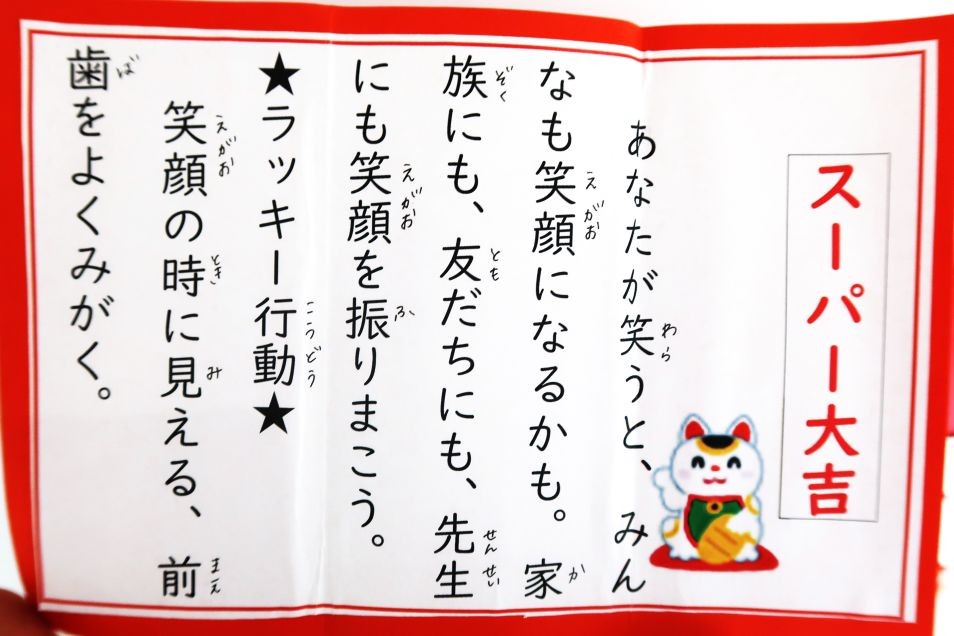 スーパー大吉
あなたが笑うと、みん
なも笑顔になるかも。家
族にも、友だちにも、先生
にも笑顔を振りまこう。
★ラッキー行動★
笑顔の時に見える、前
歯をよくみがく。
わら
えがお
か
ぞく
とも
せんせい
えがお
ふ
こうどう
えがお
とき
み
まえ
ば